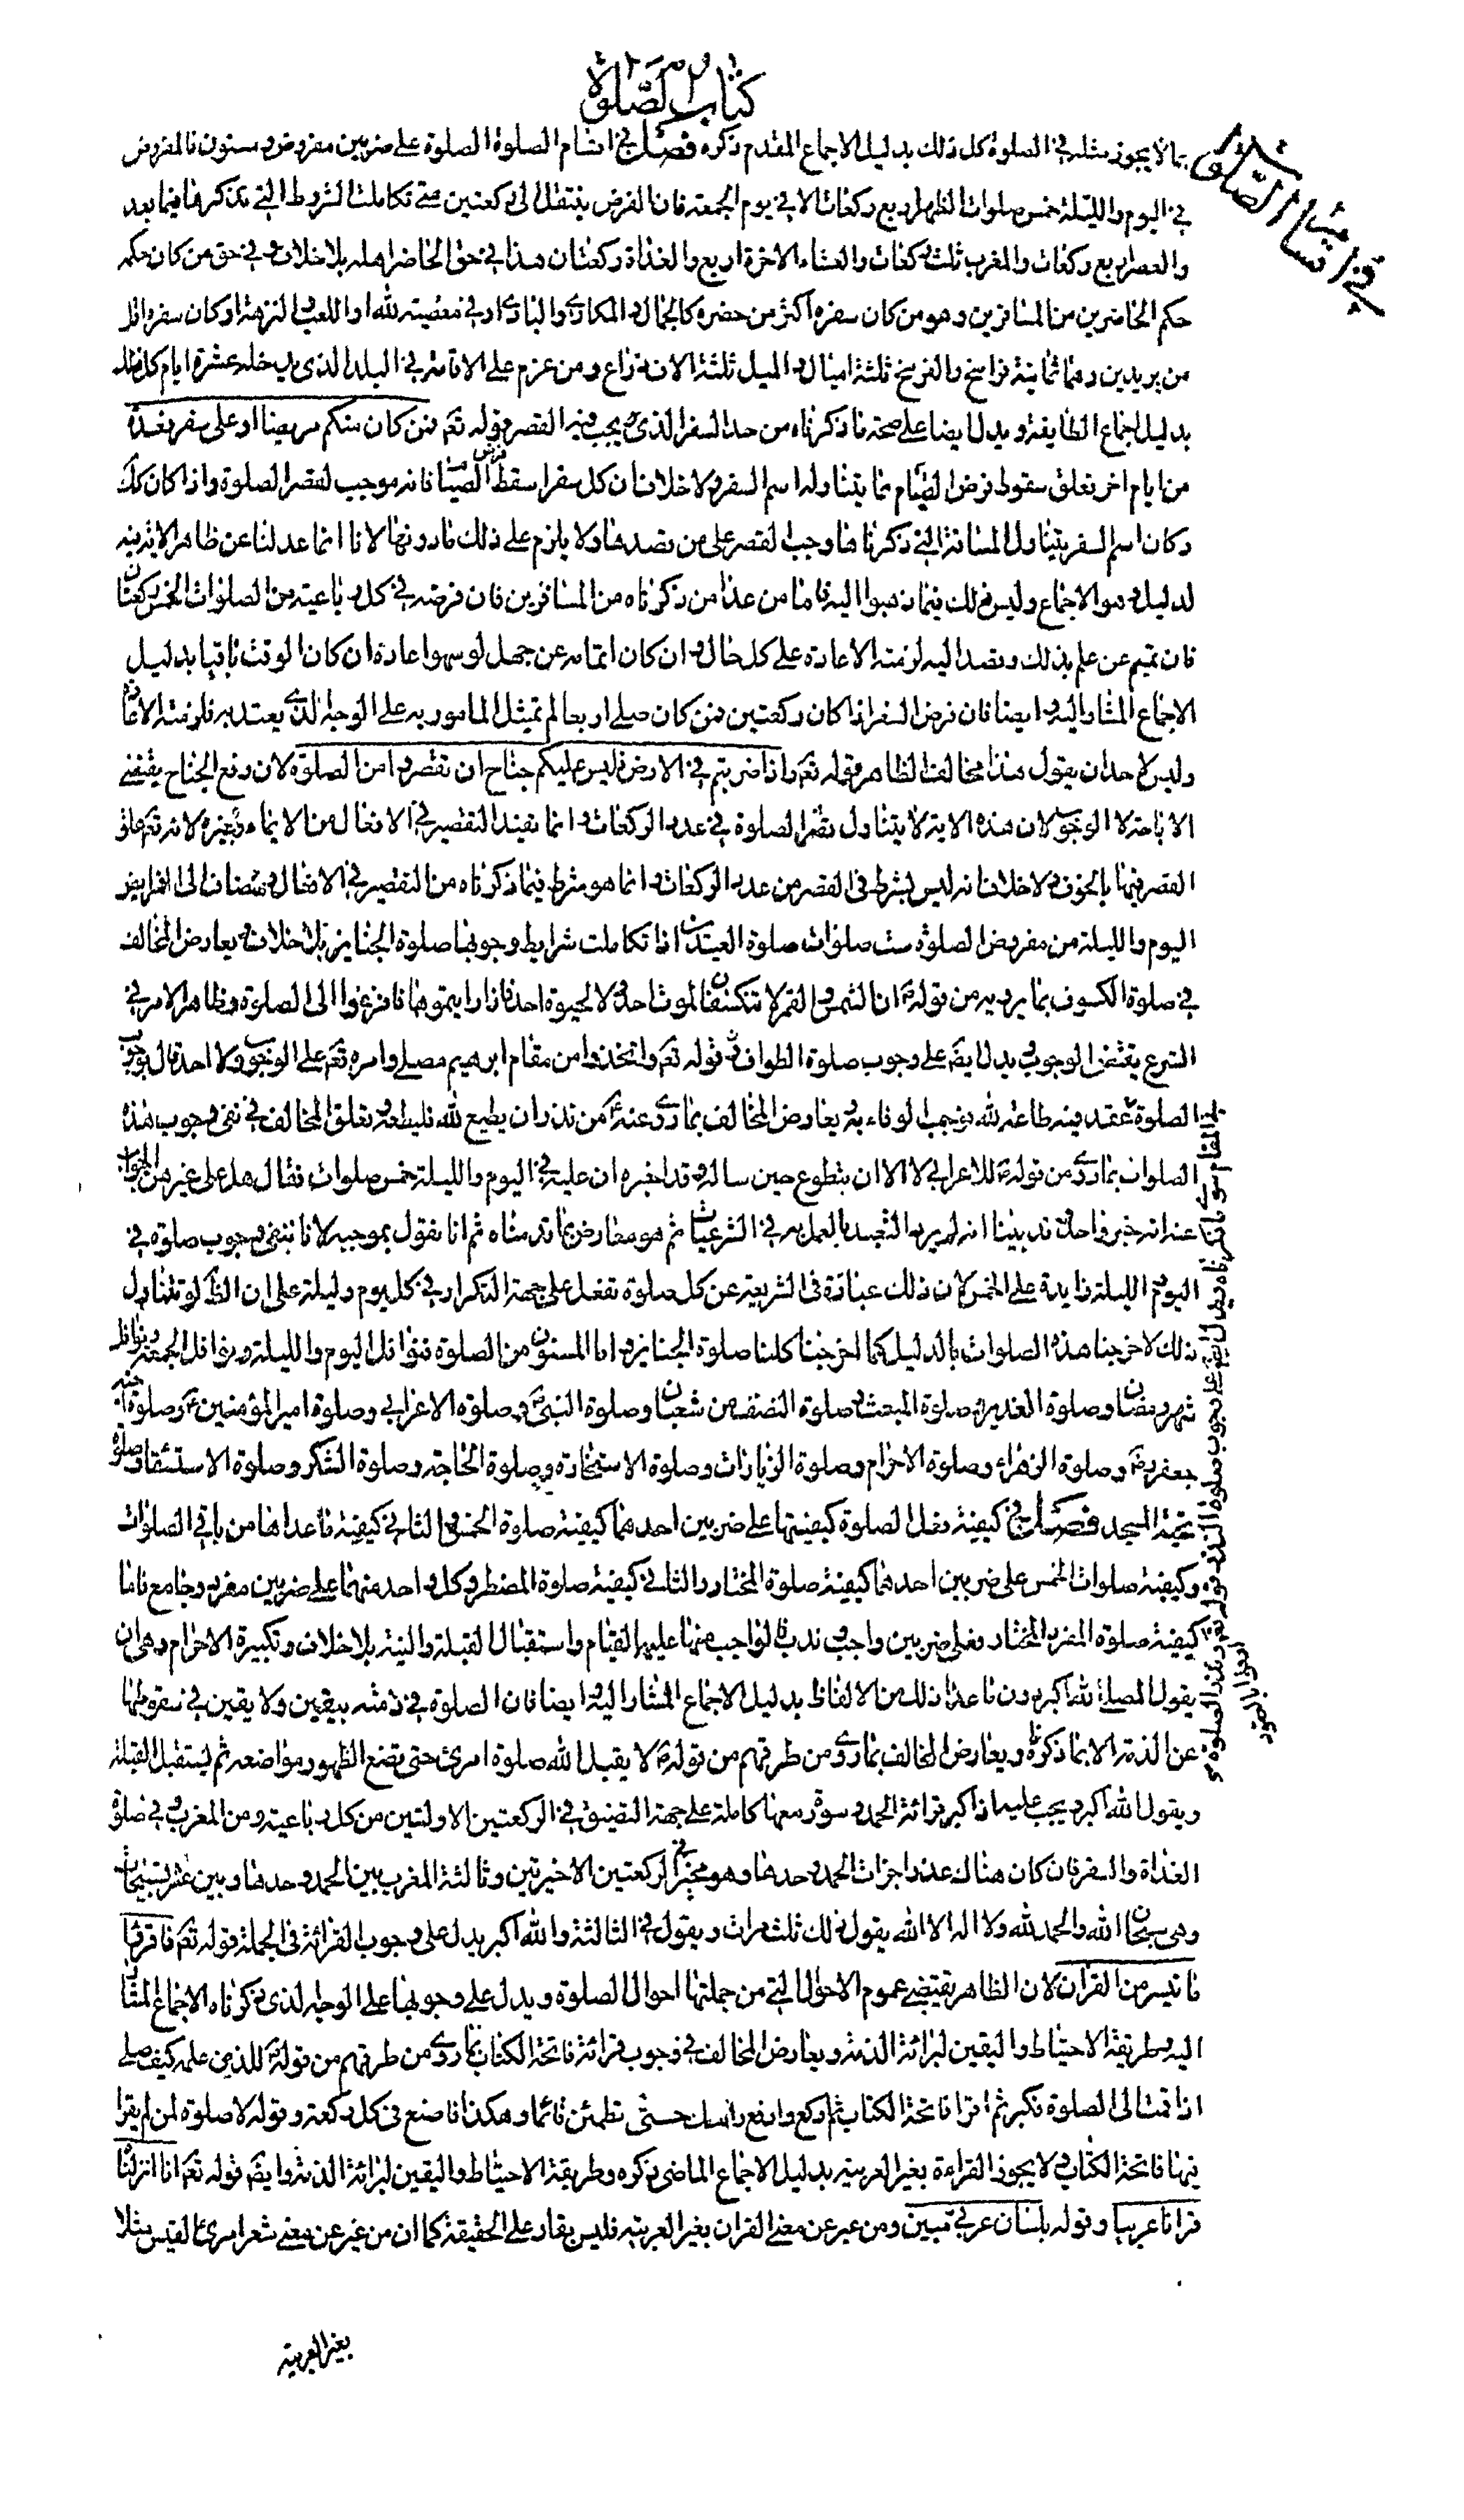 كتاب الصلوة
في اقسام الصلوة
بما لا يجوز مثله في الصلوة كل ذلك بدليل الاجماع المقدم ذكره فصل في اقسام الصلوة الصلوة على ضربين مفروض ومسنون فالمفروض
في اليوم والليلة خمس صلوات الظهر اربع ركعات الا في يوم الجمعة فان الفرض ينتقل الى ركعتين متى تكاملت الشروط التي نذكرها فيما بعد
والعصر اربع ركعات والمغرب ثلث ركعات والعشاء الاخرة اربع والغداة ركعتان هذا في حق الحاضر اهله بلا خلاف وفي حق من كان حكمه
حكم الحاضرين من المسافرين وهو من كان سفره اكثر من حضره كالجمال والمكاري والبادي او في معصية لله او اللعب والنزهة او كان سفره اقل
من بريدين وهما ثمانية فراسخ والفرسخ ثلثة اميال والميل ثلثة الاف ذراع ومن عزم على الاقامة في البلد الذي يدخله عشرة ايام كل ذلك
بدليل اجماع الطايفة ويدل ايضا على صحة ما ذكرناه من حد السفر الذي يجب فيه القصر قوله تع فمن كان منكم مريضا او على سفر فعدة
من ايام اخر فعلق سقوط فرض الصيام بما يتناوله اسم السفر ولا خلاف ان كل سفر اسقط فرض الصيام فانه موجب لقصر الصلوة واذا كان كك
وكان اسم السفر يتناول المسافة التي ذكرناها وجب القصر على من قصدها ولا يلزم على ذلك ما دونها لانا انما عدلنا عن ظاهر الاية فيه
لدليل وهو الاجماع وليس ذلك فيما ذهبوا اليه فاما من عدا من ذكرناه من المسافرين فان فرضه في كل رباعية من الصلوات الخمس ركعتان
فان تمم عن علم بذلك وقصد اليه لزمته الاعادة على كل حال وان كان اتمامه عن جهل او سهو اعادة ان كان الوقت باقيا بدليل
الاجماع المشار اليه وايضا فان فرض السفر اذا كان ركعتين فمن كان صلى اربعا لم يمتثل المامور به على الوجه الذي يعتد به فلزمته الاعادة
وليس لاحد ان يقول هذا مخالف لظاهر قوله تع واذا ضربتم في الارض فليس عليكم جناح ان تقصروا من الصلوة لان رفع الجناح يقتضي
الاباحة لا الوجوب لان هذه الاية لا يتناول قصر الصلوة في عدد الركعات وانما يفيد التقصير في الافعال من الايماء وغيره لانه تع علق
القصر فيها بالخوف ولا خلاف انه ليس بشرط في القصر من عدد الركعات وانما هو شرط فيما ذكرناه من التقصير في الافعال ومضاف الى الفرايض
اليوم والليلة من مفروض الصلوة ست صلوات صلوة العيدين اذا تكاملت شرايط وجوبها صلوة الجنايز بلا خلاف ويعارض المخالف
في صلوة الكسوف بما يرويه من قوله ان الشمس والقمر لا تنكسفان لموت احد ولا لحيوة احد فاذا رايتموها فافزعوا الى الصلوة وظاهر الامر في
الشرع يقتضي الوجوب ويدل ايض على وجوب صلوة الطواف قوله تع واتخذوا من مقام ابرهيم مصلى وامره تع على الوجوب ولا احد قال بوجوب
الصلوة عقد فيه طاعة لله فوجب الوفاء به ويعارض المخالف بما روي عنه من نذر ان يطيع لله فليطعه وتعلق المخالف في نفي وجوب هذه
الصلوات بما روي من قوله للاعرابي لا الا ان يتطوع حين ساله وقد اخبره ان عليه في اليوم والليلة خمس صلوات فقال هل على غيرهن الجواب
عنه انه خبر واحد وقد بينا انه لم يرد التعبد بالعمل به في الشرعيات ثم هو معارض بما قدمناه ثم انا نقول بموجبه لانا ننفي وجوب صلوة في
اليوم والليلة زايدة على الخمس لان ذلك عبادة في الشريعة عن كل صلوة تفعل على جهة التكرار في كل يوم وليلة على ان الظ لو تناول
ذلك لاخرجنا هذه الصلوات بالدليل كما اخرجنا كلنا صلوة الجنايز واما المسنون من الصلوة فنوافل اليوم والليلة ونوافل الجمعة ونوافل
شهر رمضان وصلوة الغدير وصلوة المبعث وصلوة النصف من شعبان وصلوة النبي وصلوة الاعرابي وصلوة امير المؤمنين وصلوة اخيه
جعفر وصلوة الزهراء وصلوة الاحرام وصلوة الزيارات وصلوة الاستخارة وصلوة الحاجة وصلوة الشكر وصلوة الاستسقاء وصلوة
تحية المسجد فصل في كيفية فعل الصلوة كيفيتها على ضربين احدهما كيفية صلوة الخمس والثاني كيفية ما عداها من باقي الصلوات
وكيفية صلوات الخمس على ضربين احدهما كيفية صلوة المختار والثاني كيفية صلوة المضطر وكل واحد منهما على ضربين مفرد وجامع فاما
كيفية صلوة المفرد المختار فعلى ضربين واجب وندب فالواجب منها عليه القيام واستقبال القبلة والنية بلا خلاف وتكبيرة الاحرام وهي ان
يقول المصلي الله اكبر دون ما عدا ذلك من الالفاظ بدليل الاجماع المشار اليه وايضا فان الصلوة في ذمته بيقين ولا يقين في سقوطها
عن الذمة الا بما ذكره ويعارض المخالف بما روي من طرقهم من قوله لا يقبل الله صلوة امرئ حتى يضع الطهور مواضعه ثم يستقبل القبلة
ويقول الله اكبر ويجب عليه اذا كبر قرائة الحمد وسورة معها كاملة على جهة التضيق في الركعتين الاولتين من كل رباعية ومن المغرب وفي صلوة
الغداة والسفر فان كان هناك عذر اجزات الحمد وحدها وهو مخير في الركعتين الاخيرتين وثالثة المغرب بين الحمد وحدها وبين عشر تسبيحات
وهي سبحان الله والحمد لله ولا اله الا الله يقول ذلك ثلث مرات ويقول في الثالثة والله اكبر يدل على وجوب القرائة في الجملة قوله تع فاقرؤا
ما تيسر من القران لان الظاهر يقتضي عموم الاحوال التي من جملتها احوال الصلوة ويدل على وجوبها على الوجه الذي ذكرناه الاجماع المشار
اليه وطريقة الاحتياط واليقين لبرائة الذمة ويعارض المخالف في وجوب قرائة فاتحة الكتاب بما روي من طرقهم من قوله للذي علمه كيف يصلي
اذا قمت الى الصلوة فكبر ثم اقرا فاتحة الكتاب ثم اركع وارفع راسك حتى تطمئن قائما وهكذا فاصنع في كل ركعة وقوله لا صلوة لمن لم يقرا
فيها فاتحة الكتاب ولا يجوز القراءة بغير العربية بدليل الاجماع الماضي ذكره وطريقة الاحتياط واليقين لبرائة الذمة وايض قوله تع انا انزلناه
قرانا عربيا وقوله بلسان عربي مبين ومن عبر عن معنى القران بغير العربية فليس بقار على الحقيقة كما ان من عبر عن معنى شعر امرئ القيس مثلا
بغير العربية